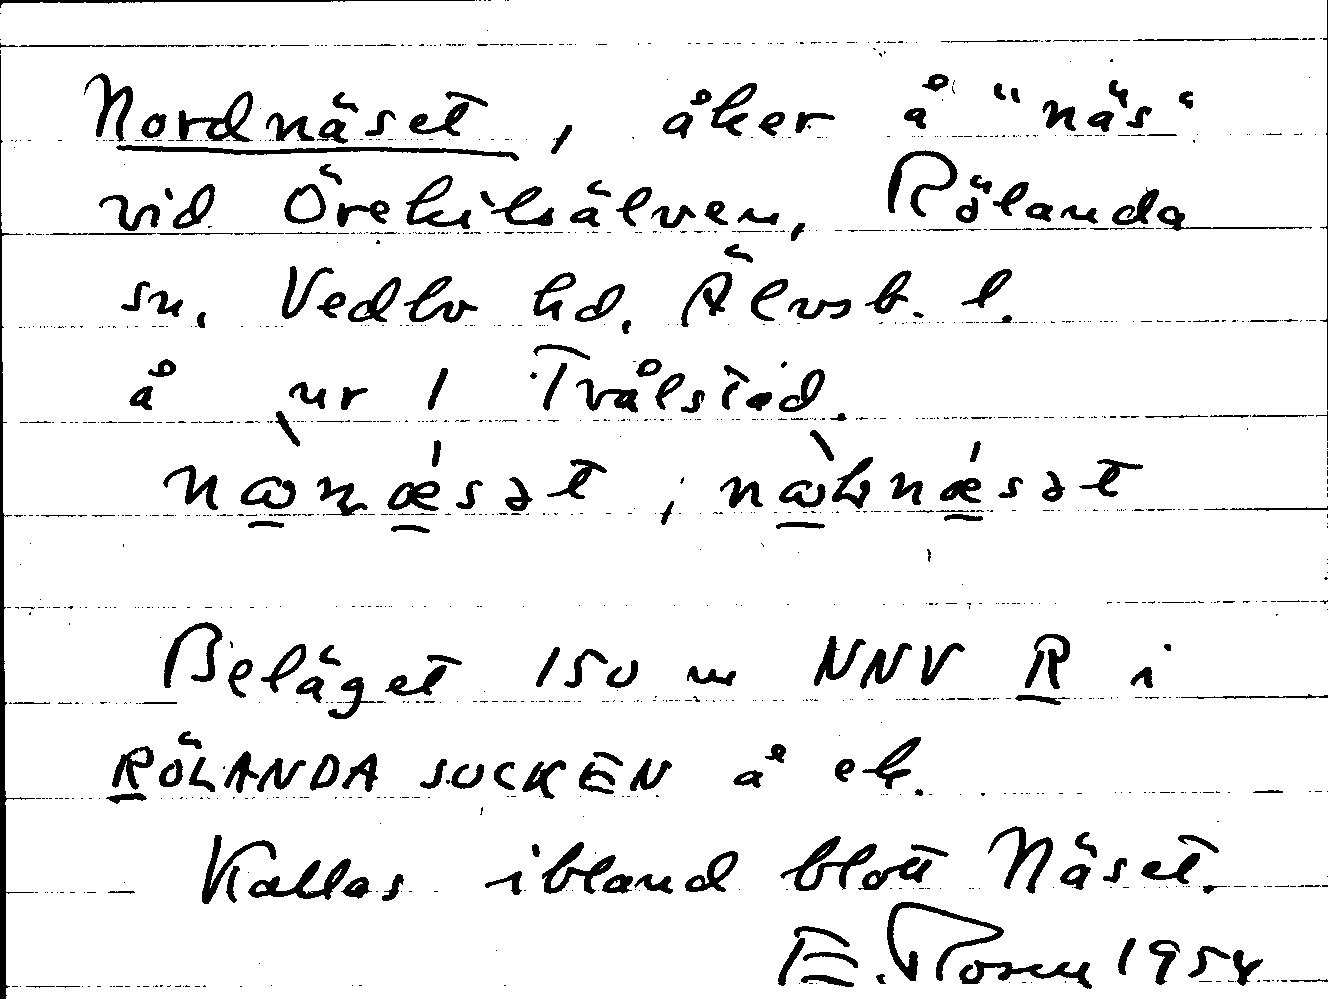 Nordnäset, åker å "näs"
vid Örekilsälven, Rölanda
sn. Vedbo hd. Älvsb. l.
å nr 1 Tvålstad.
Beläget 150 m NNV R i
RÖLANDA SOCKEN å ek.
Kallas ibland blott Näset.
E. Rosen 1954